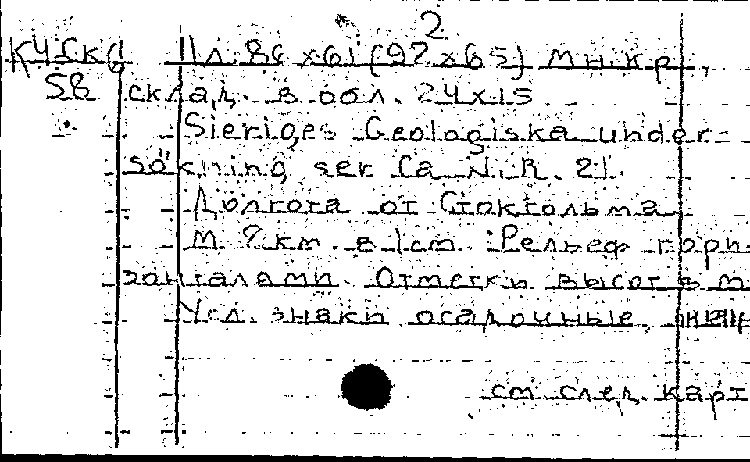 2
1 л. 86 х 61 (92 х 65) мн. кр.,
58 склад. в обл. 24х15
Sveriges Geologiska under-
sökning ser Ca N.R. 21.
Долгота от Стокгольма
М. ?км. в 1 см. Рельеф гори-
зонталами. Отметки высот в м
Усл. знаки осадочные,
см след. карт